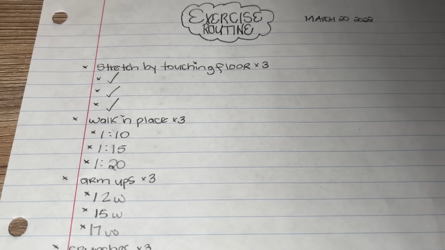 EXERCISE
ROUTINE
MARCH 20 2022
* Stretch by touching floor x3
* ✓
* ✓
* ✓
* walk in place x3
* 1:10
* 1:15
* 1:20
* arm ups x3
* 12w
* 15w
* 17w